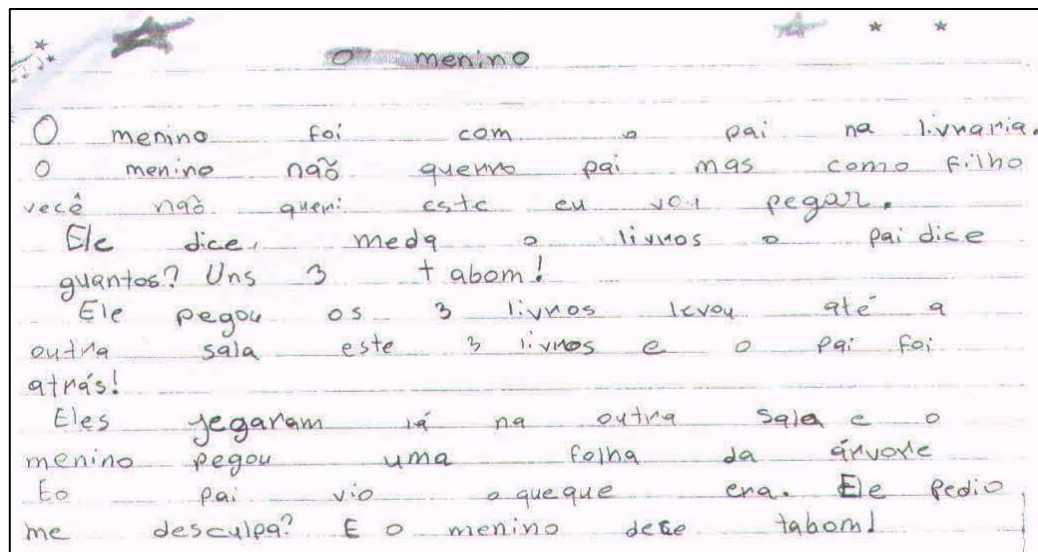 O menino
O menino foi com o pai na livraria.
O menino não querro pai mas como filho
vecê não queri este eu voi pegar.
Ele dice, meda o livros o pai dice
quantos? Uns 3 tabom!
Ele pegou os 3 livros levou até a
outra sala este 3 livros e o pai foi
atrás!
Eles jegaram lá na outra sala e o
menino pegou uma folha da árvore
Eo pai vio o queque era. Ele pedio
me desculpa? E o menino dece tabom!